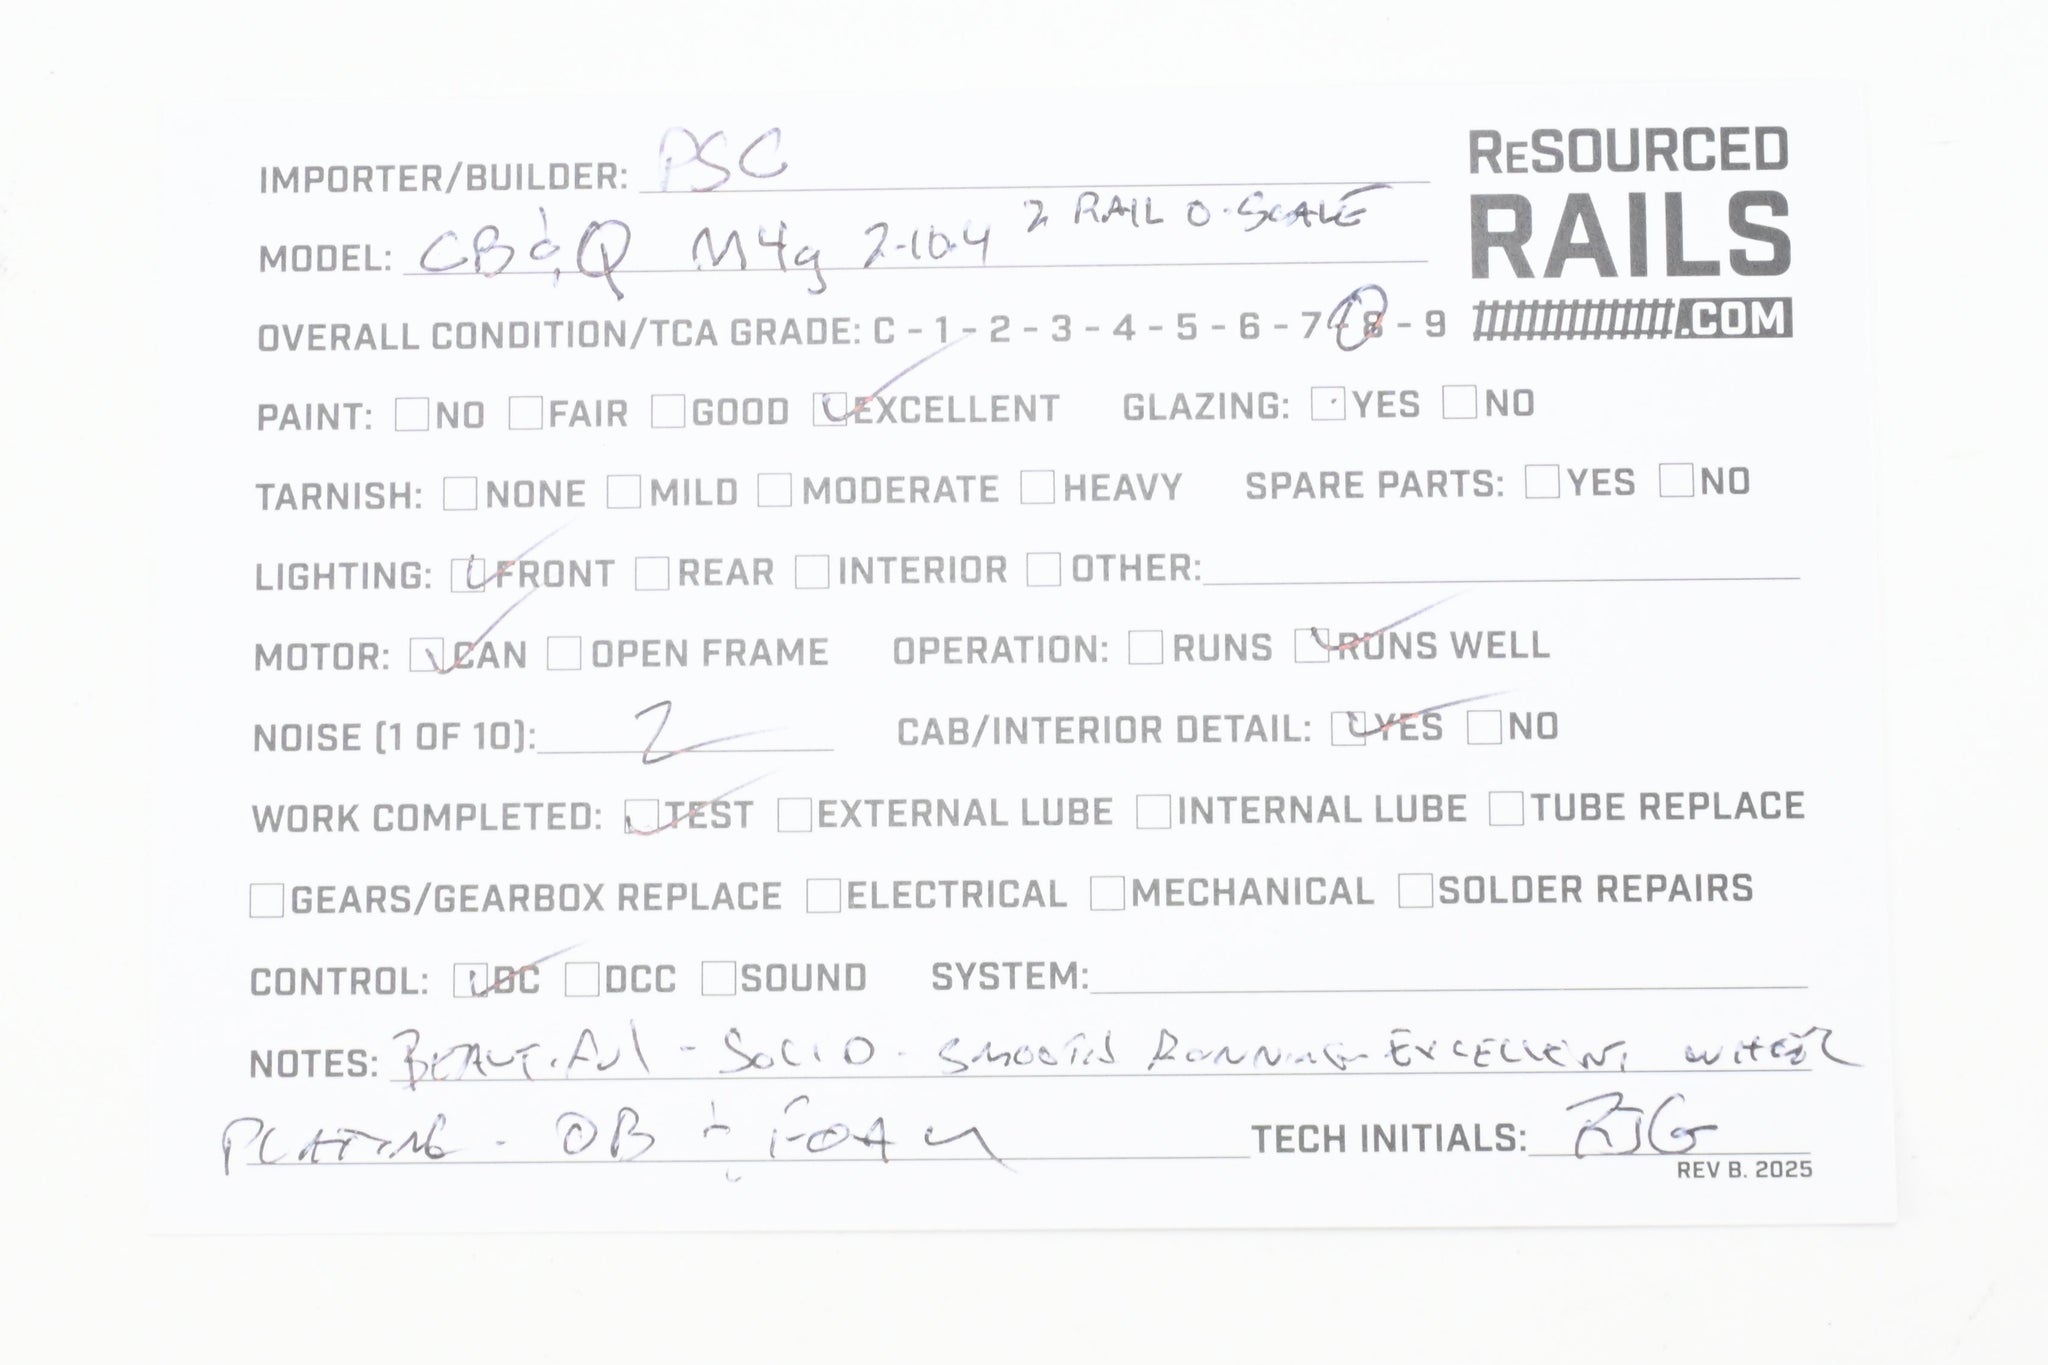 IMPORTER/BUILDER: PSC
ReSOURCED
RAILS
.COM
MODEL: CB&Q M4g 2-10-4 2 RAIL O-SCALE
OVERALL CONDITION/TCA GRADE: C - 1 - 2 - 3 - 4 - 5 - 6 - 7 - 8 - 9
PAINT: NO FAIR GOOD EXCELLENT GLAZING: YES NO
TARNISH: NONE MILD MODERATE HEAVY SPARE PARTS: YES NO
LIGHTING: FRONT REAR INTERIOR OTHER:
MOTOR: CAN OPEN FRAME OPERATION: RUNS RUNS WELL
NOISE (1 OF 10): 2 CAB/INTERIOR DETAIL: YES NO
WORK COMPLETED: TEST EXTERNAL LUBE INTERNAL LUBE TUBE REPLACE
GEARS/GEARBOX REPLACE ELECTRICAL MECHANICAL SOLDER REPAIRS
CONTROL: DC DCC SOUND SYSTEM:
NOTES: BEAUTIFUL - SOLID - SMOOTH RUNNING - EXCELLENT
PLATING - OB & FOAM TECH INITIALS: RJG
REV B. 2025